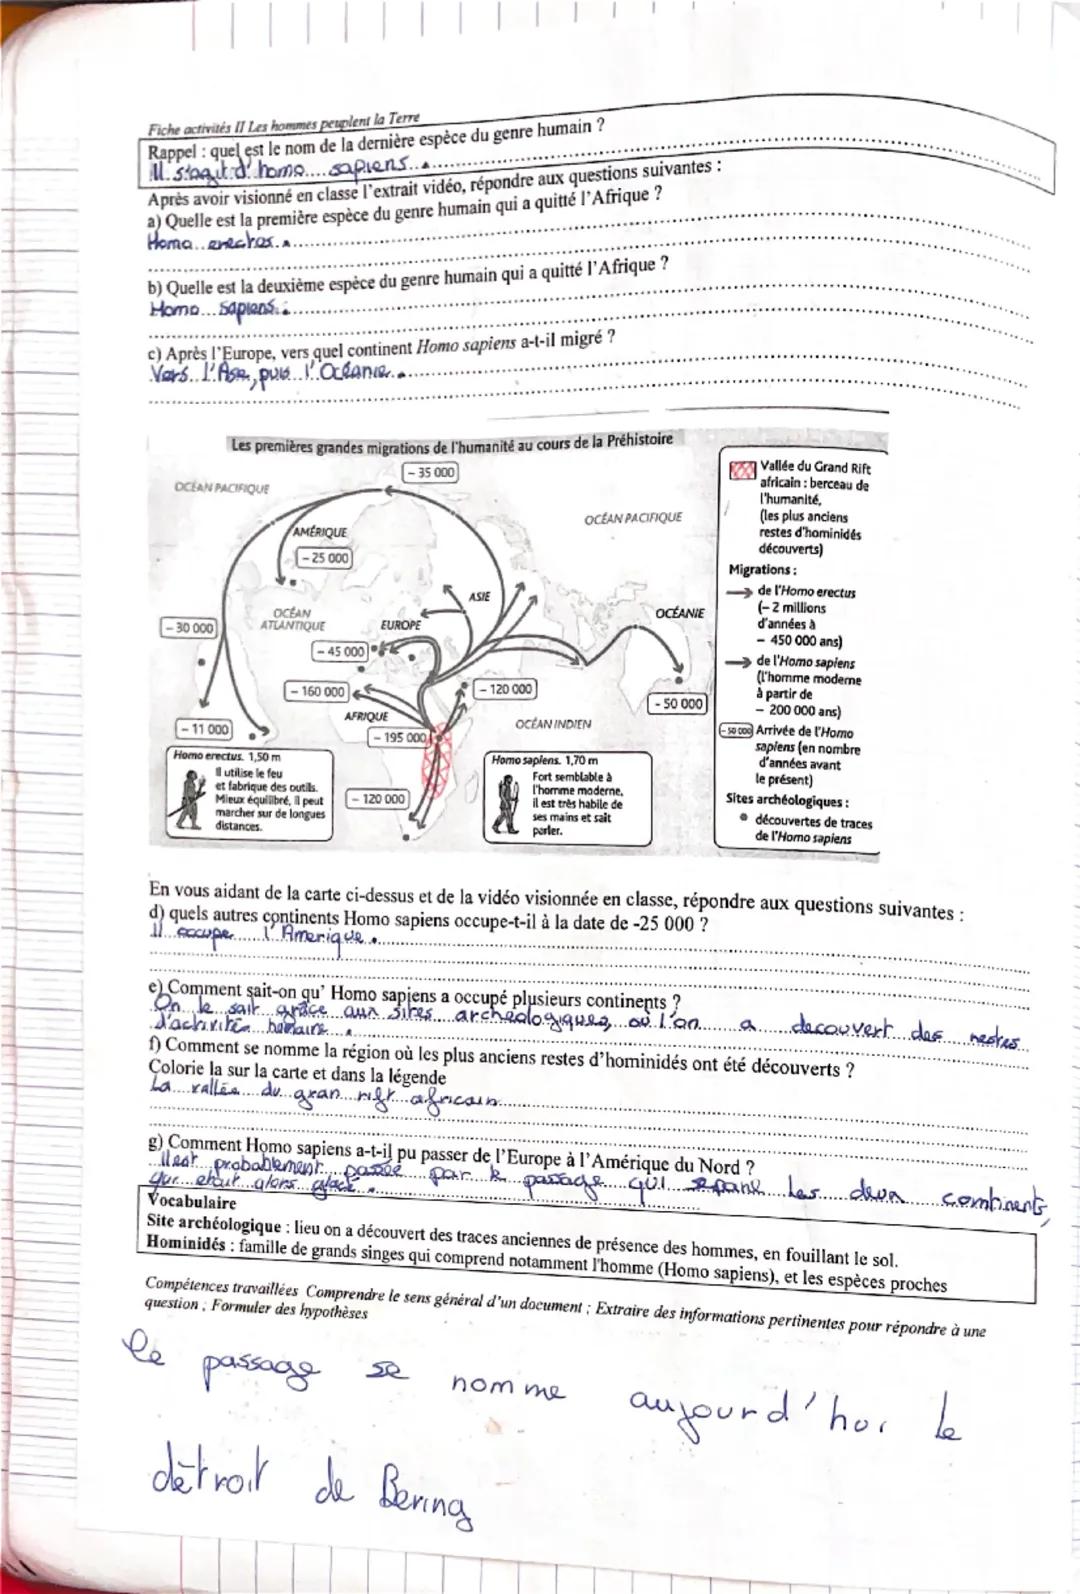 Fiche activités II Les hommes peuplent la Terre
Rappel : quel est le nom de la dernière espèce du genre humain ?
Il s'agit d'homo sapiens.
Après avoir visionné en classe l'extrait vidéo, répondre aux questions suivantes :
a) Quelle est la première espèce du genre humain qui a quitté l'Afrique ?
Homo erectus.
b) Quelle est la deuxième espèce du genre humain qui a quitté l'Afrique ?
Homo sapiens.
c) Après l'Europe, vers quel continent Homo sapiens a-t-il migré ?
Vers l'Asie, puis l'Océanie.
Les premières grandes migrations de l'humanité au cours de la Préhistoire
- 35 000
OCÉAN PACIFIQUE
OCÉAN PACIFIQUE
AMÉRIQUE
- 25 000
ASIE
OCÉANIE
OCÉAN
ATLANTIQUE
EUROPE
- 30 000
- 45 000
- 160 000
- 120 000
- 50 000
AFRIQUE
OCÉAN INDIEN
- 11 000
- 195 000
- 120 000
Homo erectus. 1,50 m
Il utilise le feu
et fabrique des outils.
Mieux équilibré, il peut
marcher sur de longues
distances.
Homo sapiens. 1,70 m
Fort semblable à
l'homme moderne,
il est très habile de
ses mains et sait
parler.
Vallée du Grand Rift
africain : berceau de
l'humanité,
(les plus anciens
restes d'hominidés
découverts)
Migrations :
de l'Homo erectus
(- 2 millions
d'années à
- 450 000 ans)
de l'Homo sapiens
(l'homme moderne
à partir de
- 200 000 ans)
- 50 000 Arrivée de l'Homo
sapiens (en nombre
d'années avant
le présent)
Sites archéologiques :
découvertes de traces
de l'Homo sapiens
En vous aidant de la carte ci-dessus et de la vidéo visionnée en classe, répondre aux questions suivantes :
d) quels autres continents Homo sapiens occupe-t-il à la date de -25 000 ?
Il occupe l'Amerique.
e) Comment sait-on qu' Homo sapiens a occupé plusieurs continents ?
On le sait grâce aux sites archéologiques, où l'on a decouvert des restes
d'activités humaine.
f) Comment se nomme la région où les plus anciens restes d'hominidés ont été découverts ?
Colorie la sur la carte et dans la légende
La vallée du gran rift africain
g) Comment Homo sapiens a-t-il pu passer de l'Europe à l'Amérique du Nord ?
Il est probablement passée par le passage qui separe les deux continents,
qui etait alors glacé.
Vocabulaire
Site archéologique : lieu on a découvert des traces anciennes de présence des hommes, en fouillant le sol.
Hominidés : famille de grands singes qui comprend notamment l'homme (Homo sapiens), et les espèces proches
Compétences travaillées Comprendre le sens général d'un document ; Extraire des informations pertinentes pour répondre à une
question ; Formuler des hypothèses
le passage se nomme aujourd'hui le
détroit de Bering